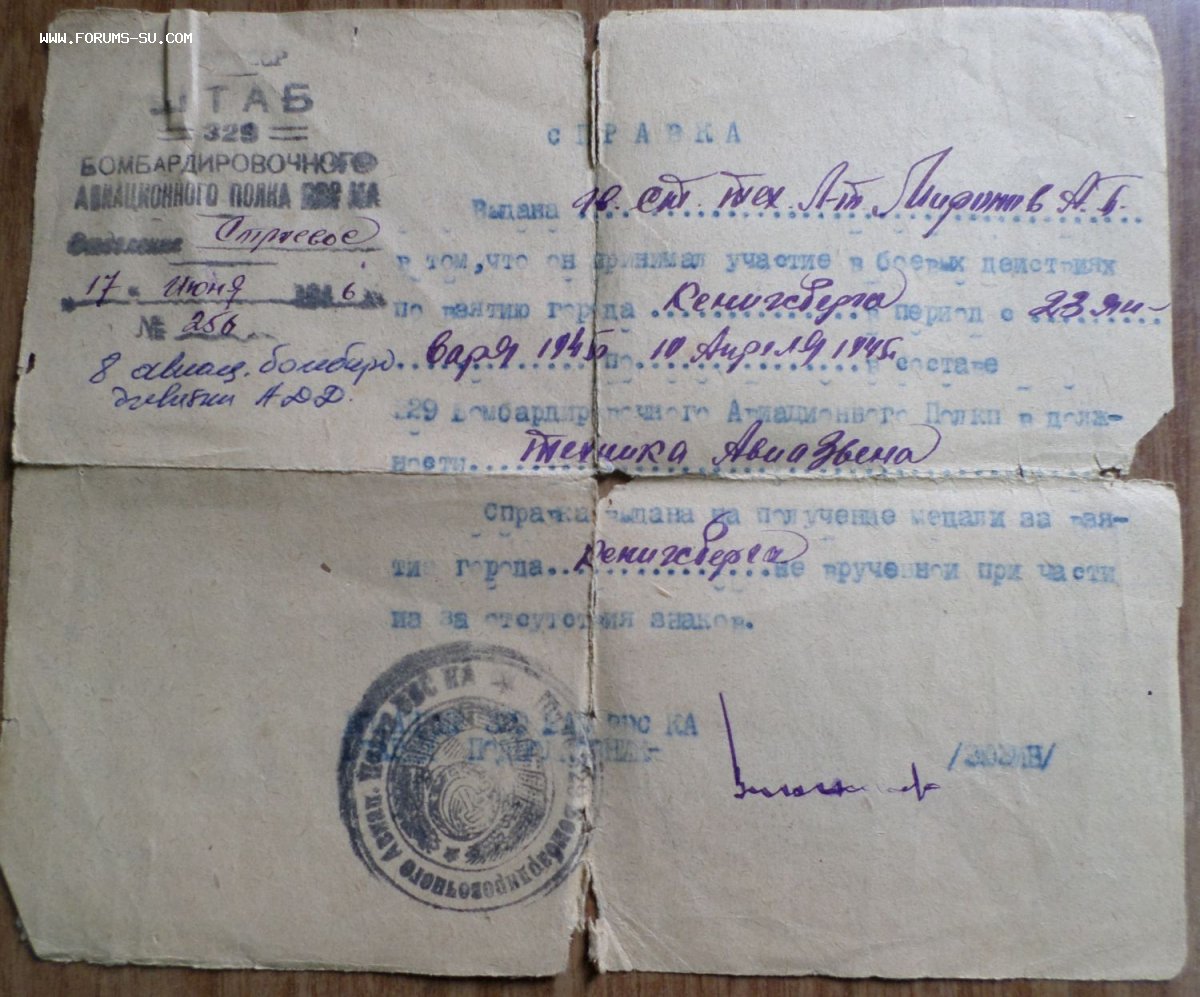 WWW.FORUMS-SU.COM
ШТАБ
329
БОМБАРДИРОВОЧНОГО
АВИАЦИОННОГО ПОЛКА ВВС КА
Отделение Строевое
17 " Июня 1946
№ 256
8 авиац. бомбард.
дивизии АДД.
СПРАВКА
Выдана гв. ст. тех. Л-т А.
в том, что он принимал участие в боевых действиях
по взятию города Кенигсберга в период с 23 ян-
варя 1945 по 10 Апреля 1945г в составе
329 Бомбардировочного Авиационного Полка в долж-
ности техника АвиаЗвена
Справка выдана на получение медали за взя-
тие города Кенигсберга не врученной при части
из за отсутствия знаков.
329 БАП ВВС КА
ПОДПОЛКОВНИК-
/ЗЮЗИН/
Бомбардировочного Авиац. Полка ВВС КА